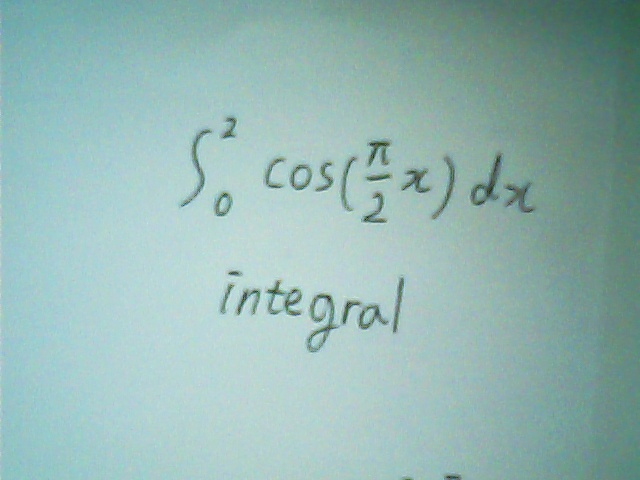 ∫₀² cos(π/2 x) dx
integral